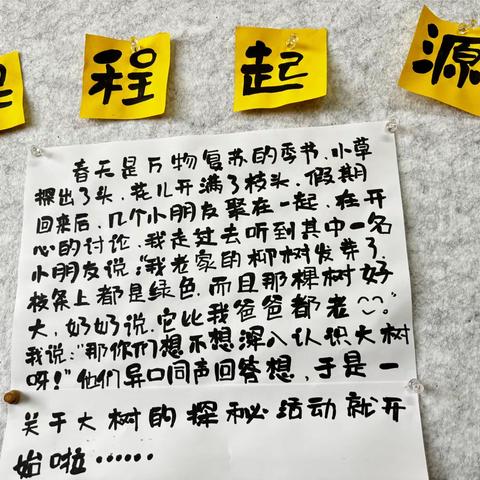 程起源
春天是万物复苏的季节,小草
探出了头,花儿开满了枝头,假期
回来后,几个小朋友聚在一起,在开
心的讨论,我走过去听到其中一名
小朋友说:"我老家的柳树发芽了,
枝条上都是绿色,而且那棵树好
大,奶奶说,它比我爸爸都老。"
我说:"那你们想不想深入认识大树
呀!"他们异口同声回答想,于是一
关于大树的探秘活动就开
始啦……